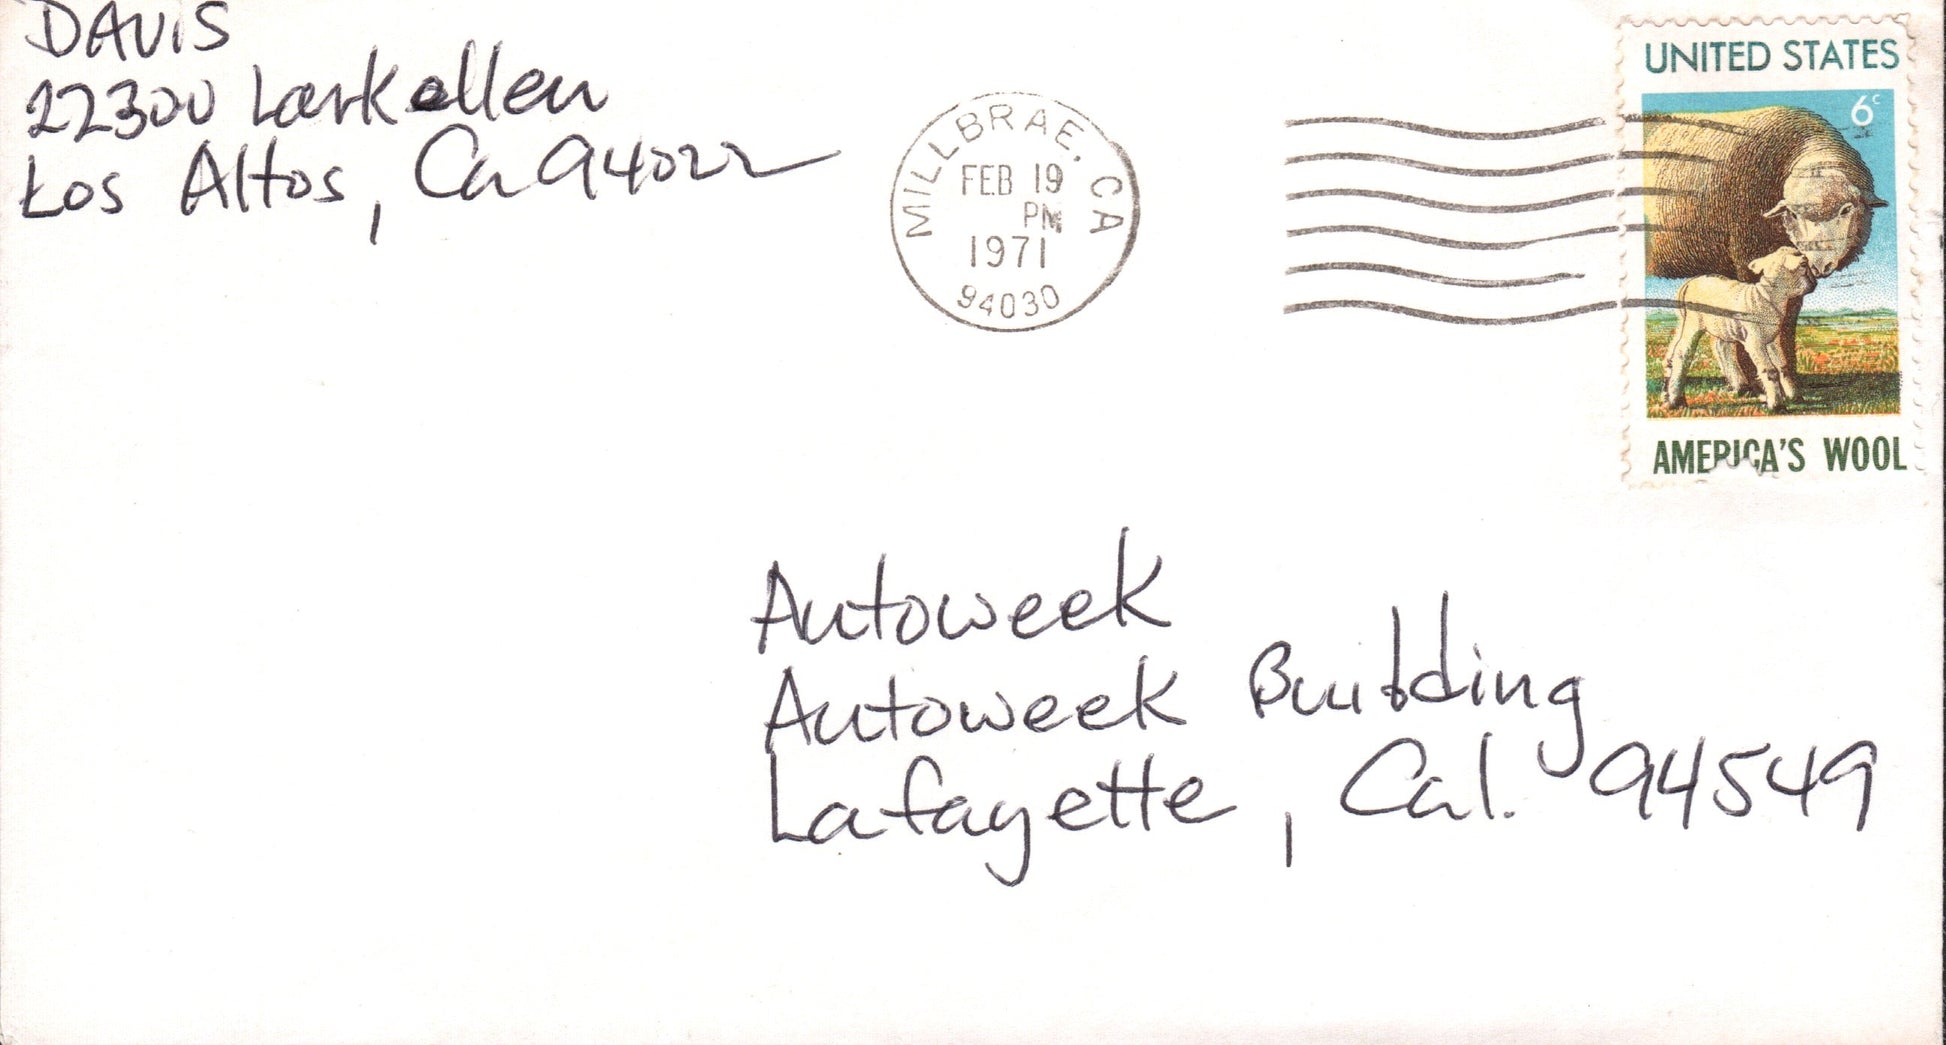 DAVIS
22300 Larkellen
Los Altos, Ca 94022
MILLBRAE, CA
FEB 19
PM
1971
94030
UNITED STATES
6c
AMERICA'S WOOL
Autoweek
Autoweek Building
Lafayette, Cal. 94549